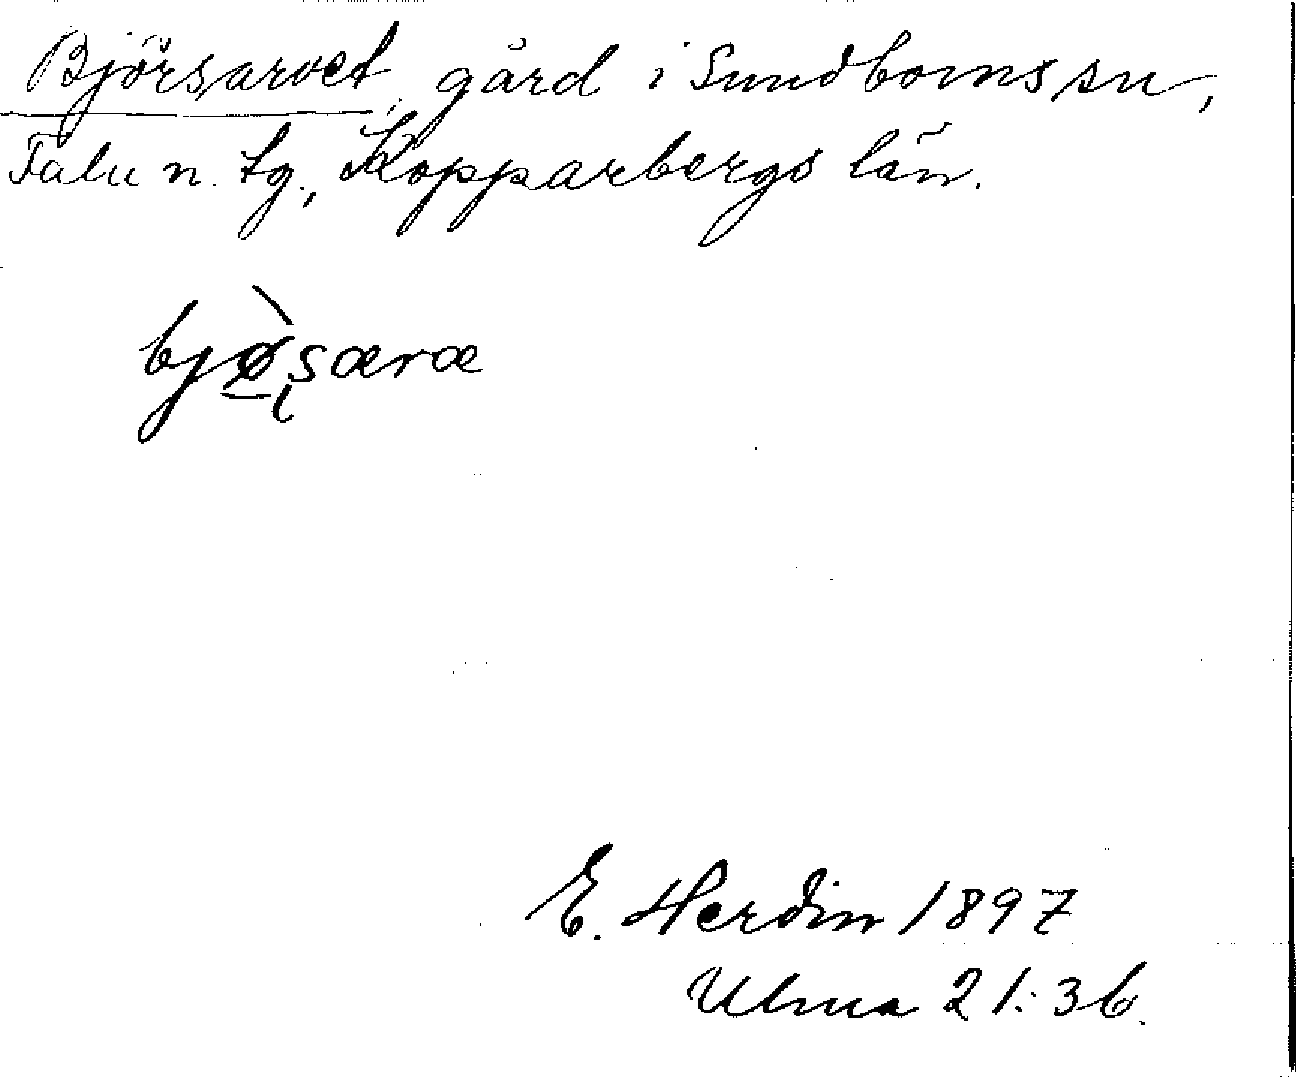 Björsarvet, gård i Sundborns sn,
Falu n. tg., Kopparbergs län.
bjø̀særæ
E. Herdin 1897
Ulma 21:36.